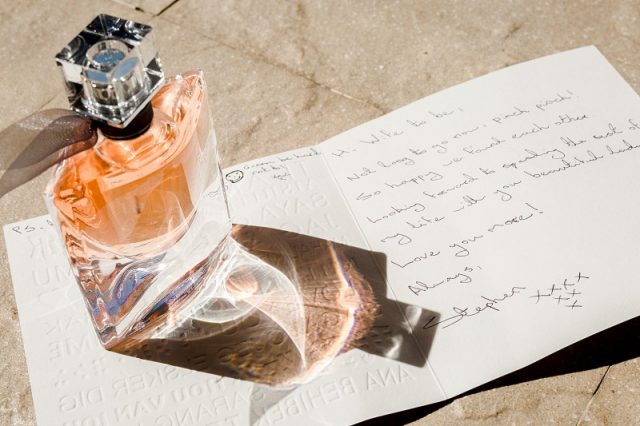 Hi, Wife to be,
Not long to go now, pinch pinch!
So happy we found each other
Looking forward to spending the rest of
my life with you beautiful lady
Love you more!
Always,
Stephen xxxx
xx
x
PS.
be hard
SKER DIG
HOU VAN JOU
SARANG
ANA BEHIBEK